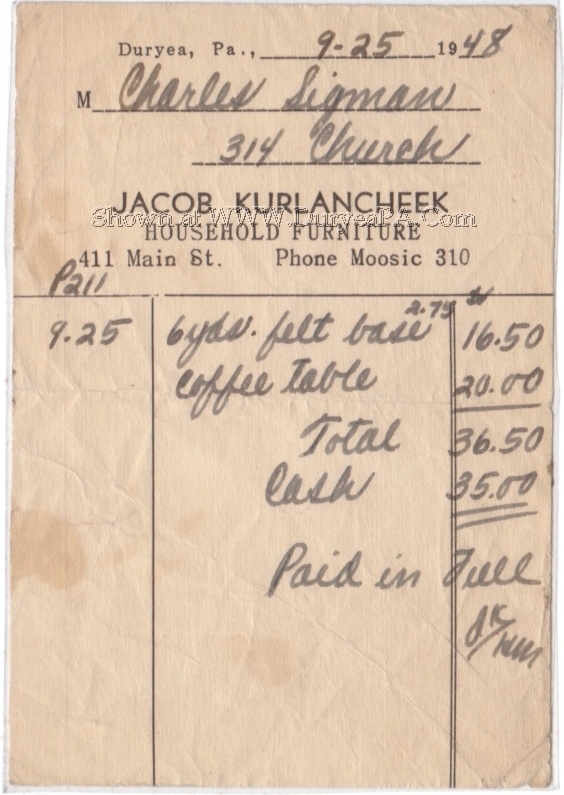 Duryea, Pa., 9-25 1948
M Charles Sigman
314 Church
JACOB KURLANCHEEK
Shown at WWW.DuryeaPA.Com
HOUSEHOLD FURNITURE
411 Main St. Phone Moosic 310
P211
9.25 6 yds. felt base 2.75 16.50
Coffee table 20.00
Total 36.50
Cash 35.00
Paid in Full
JK/